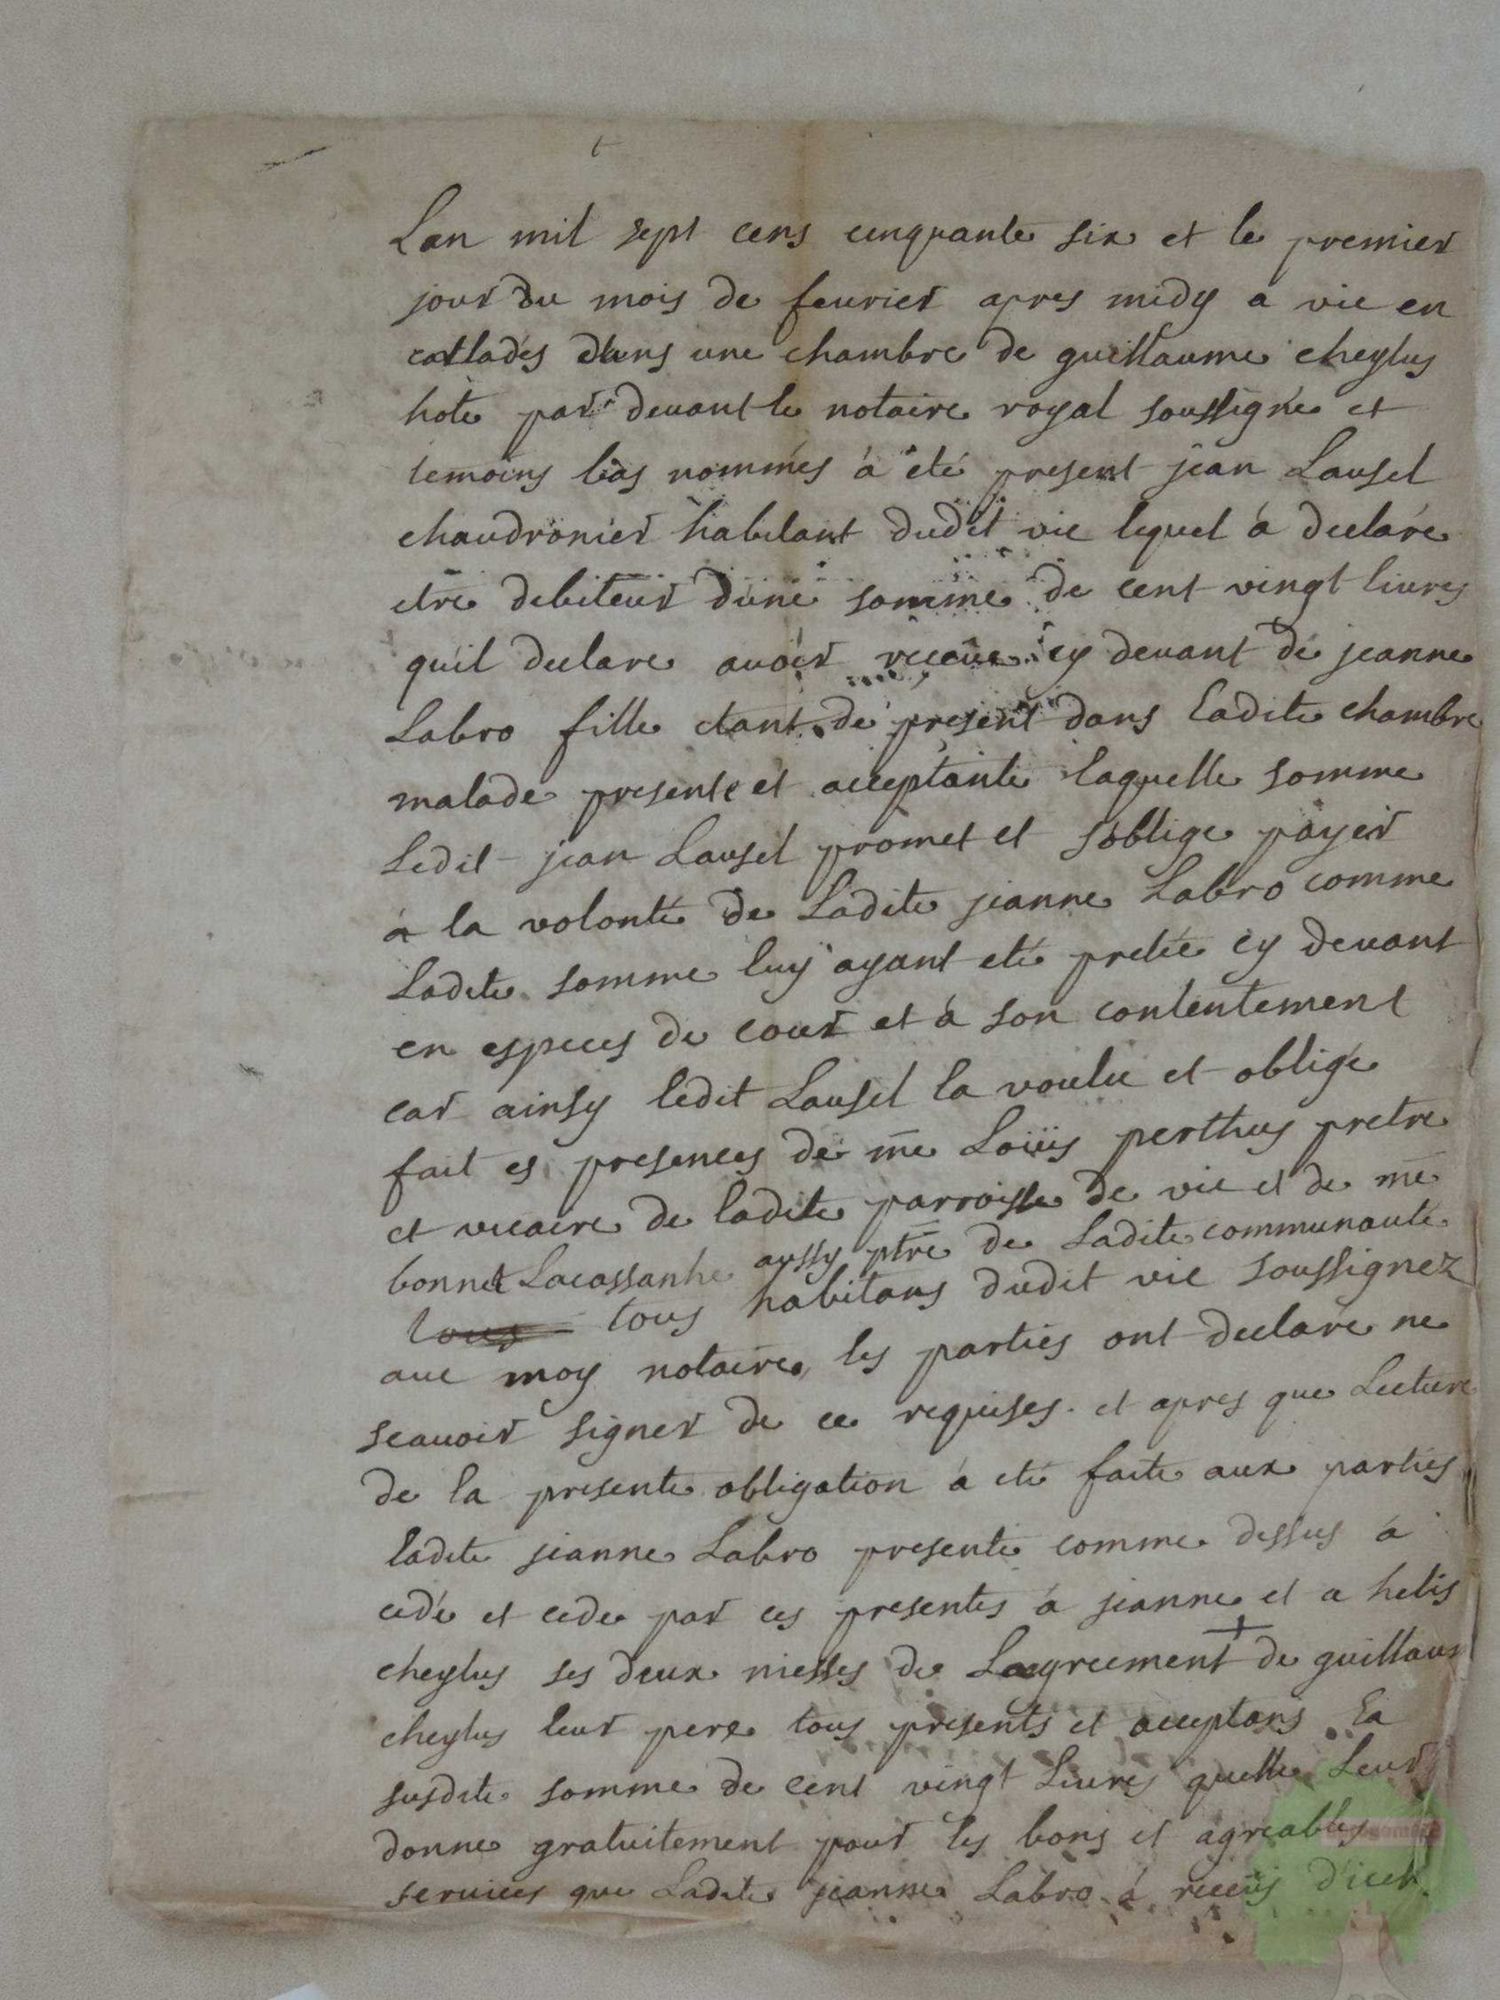 Lan mil sept cens cinquante six et le premier
jour du mois de feurier apres midy a vic en
carlades dans une chambre de guillaume cheylus
hote par deuant le notaire royal soussigné et
temoins bas nommés à eté present jean Lausel
chaudronier habitant dudit vic lequel à declaré
etre debiteur dune somme de cent vingt liures
quil declare auoir receüe cy deuant de jeanne
Labro fille etant de present dans Ladite chambre
malade presente et acceptante laquelle somme
Ledit jean Lausel promet et soblige payer
á la volonté de Ladite jeanne Labro comme
Ladite somme luy ayant eté pretée cy deuant
en especes de cour et à son contentement
car ainsy ledit Lausel la voulu et obligé
fait es presences de me Loüis perthus pretre
et vicaire de ladite parroisse de vic et de me
bonnet Lacassanhe aussy ptre de Ladite communauté
tous tous habitans dudit vic soussignez
auec moy notaire, les parties ont declaré ne
scauoir signer de ce requises. et apres que Lecture
de la presente obligation à eté faite aux parties
ladite jeanne Labro presente comme dessus à
cedé et cede par ces presentes à jeanne et a helis
cheylus ses deux niesses de Lagreement + de guillaume
cheylus leur pere tous presents et acceptans La
susdite somme de cent vingt Liures quelle Leur
donne gratuitement pour les bons et agreables
seruices que Ladite jeanne Labro à receüs